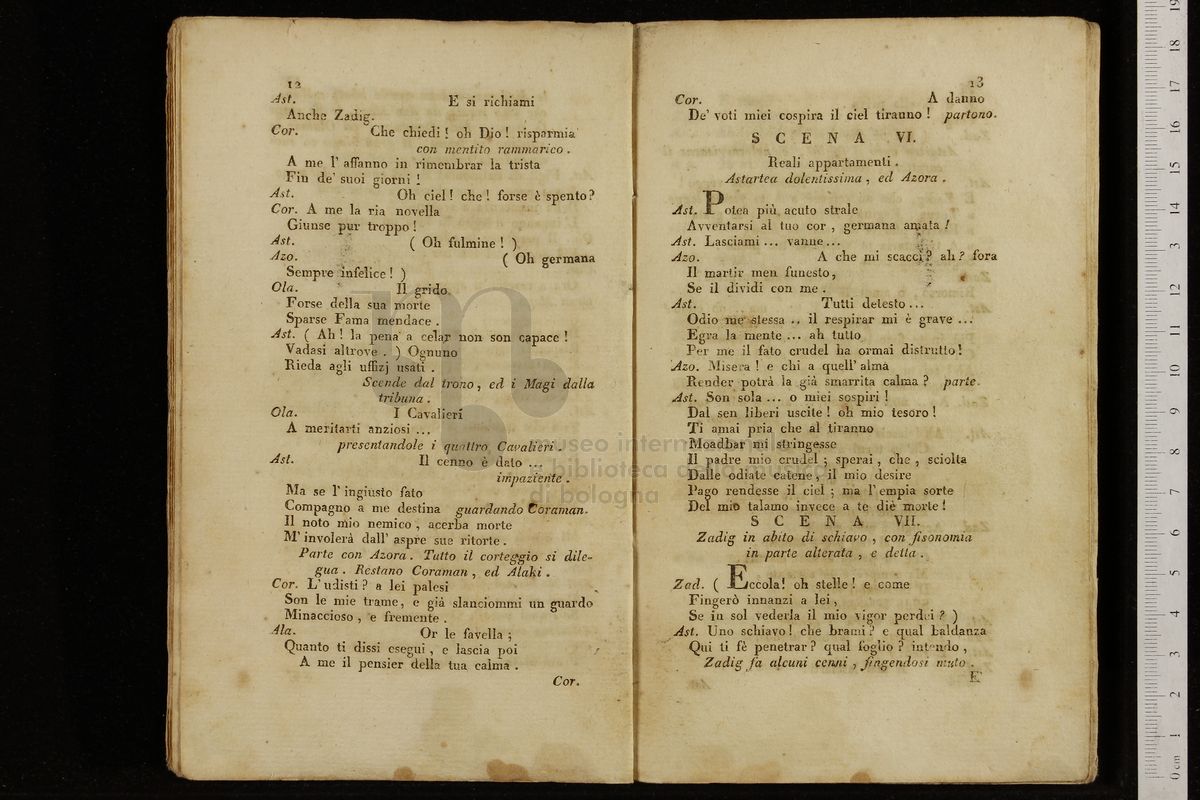 12
Ast. E si richiami
Anche Zadig.
Cor. Che chiedi ! oh Dio ! risparmia
con mentito rammarico .
A me l' affanno in rimembrar la trista
Fin de' suoi giorni !
Ast. Oh ciel ! che ! forse è spento ?
Cor. A me la ria novella
Giunse pur troppo !
Ast. ( Oh fulmine ! )
Azo. ( Oh germana
Sempre infelice ! )
Ola. Il grido
Forse della sua morte
Sparse Fama mendace .
Ast. ( Ah ! la pena a celar non son capace !
Vadasi altrove . ) Ognuno
Rieda agli uffizj usati .
Scende dal trono , ed i Magi dalla
tribuna .
Ola. I Cavalieri
A meritarti anziosi ...
presentandole i quattro Cavalieri .
Ast. Il cenno è dato ...
impaziente .
Ma se l' ingiusto fato
Compagno a me destina guardando Coraman.
Il noto mio nemico , acerba morte
M' involerà dall' aspre sue ritorte .
Parte con Azora . Tutto il corteggio si dile-
gua . Restano Coraman , ed Alaki .
Cor. L' udisti ? a lei palesi
Son le mie trame, e già slanciommi un guardo
Minaccioso , e fremente .
Ala. Or le favella ;
Quanto ti dissi esegui , e lascia poi
A me il pensier della tua calma .
Cor.
13
Cor. A danno
De' voti miei cospira il ciel tiranno ! partono.
SCENA VI.
Reali appartamenti .
Astartea dolentissima , ed Azora .
Ast. Potea più acuto strale
Avventarsi al tuo cor , germana amata !
Ast. Lasciami ... vanne ...
Azo. A che mi scacci ? ah ? fora
Il martir men funesto,
Se il dividi con me .
Ast. Tutti detesto ...
Odio me stessa .. il respirar mi è grave ...
Egra la mente ... ah tutto
Per me il fato crudel ha ormai distrutto !
Azo. Misera ! e chi a quell' alma
Render potrà la già smarrita calma ? parte.
Ast. Son sola ... o miei sospiri !
Dal sen liberi uscite ! oh mio tesoro !
Ti amai pria che al tiranno
Moadbar mi stringesse
Il padre mio crudel ; sperai , che , sciolta
Dalle odiate catene , il mio desire
Pago rendesse il ciel ; ma l' empia sorte
Del mio talamo invece a te diè morte !
SCENA VII.
Zadig in abito di schiavo , con fisonomia
in parte alterata , e detta .
Zad. ( Eccola! oh stelle ! e come
Fingerò innanzi a lei ,
Se in sol vederla il mio vigor perdei ? )
Ast. Uno schiavo ! che brami ? e qual baldanza
Qui ti fè penetrar ? qual foglio ? intendo ,
Zadig fa alcuni cenni , fingendosi muto .
E
museo
biblioteca della musica
di bologna